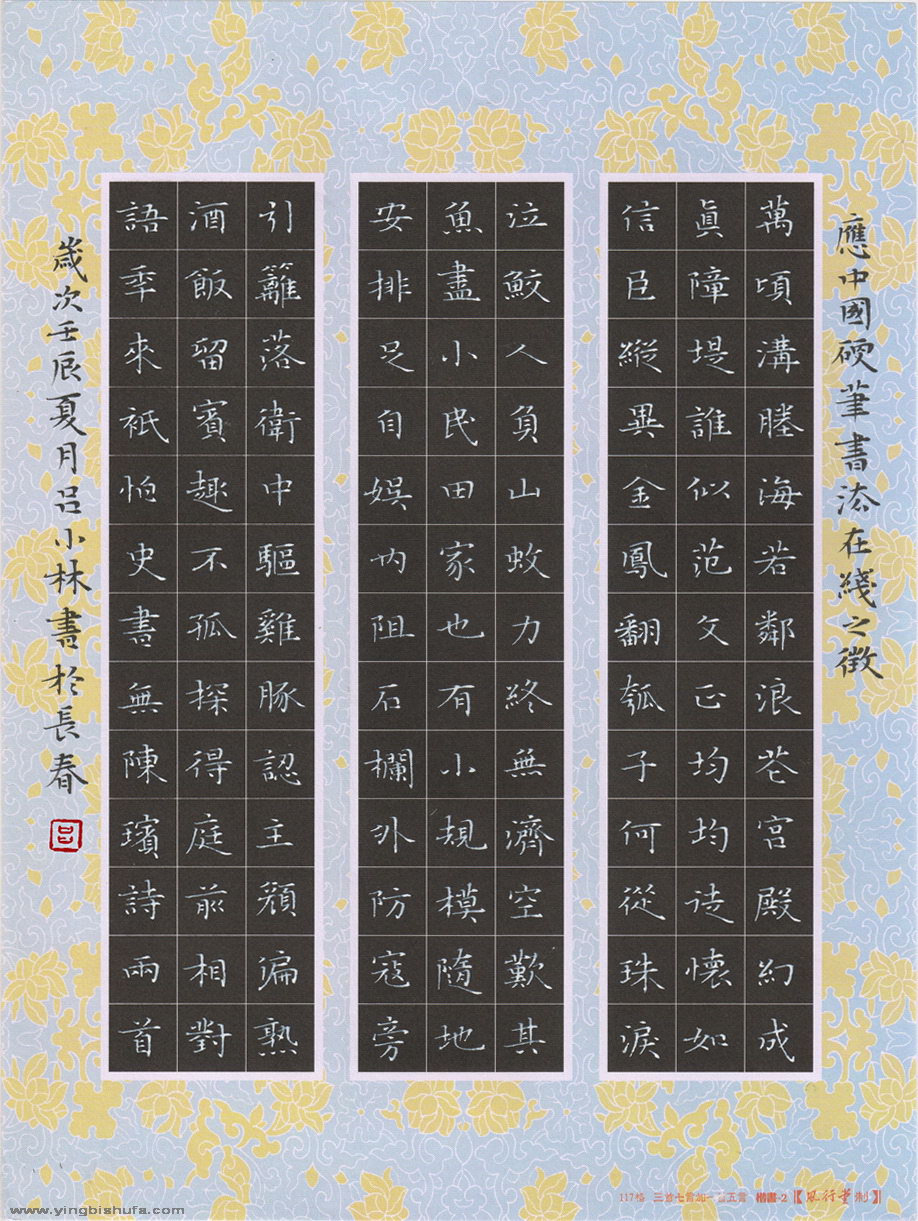 應中國硬筆書法在綫之徵
萬頃溝塍海若鄰浪花宮殿幻成
眞障堤誰似范文正均均徒懷如
信臣縱異金鳳翻瓠子何從珠淚
泣鮫人負山蚊力終無濟空歎其
魚盡小民田家也有小規模隨地
安排足自娛內阻石欄外防寇旁
引籬落衛中驅雞豚認主顏偏熟
酒飯留賓趣不孤探得庭前相對
語秊來衹怕史書無陳璸詩兩首
歲次壬辰夏月呂小林書於長春
呂
117格 三首七言加一首五言 楷書-2
www.yingbishufa.com